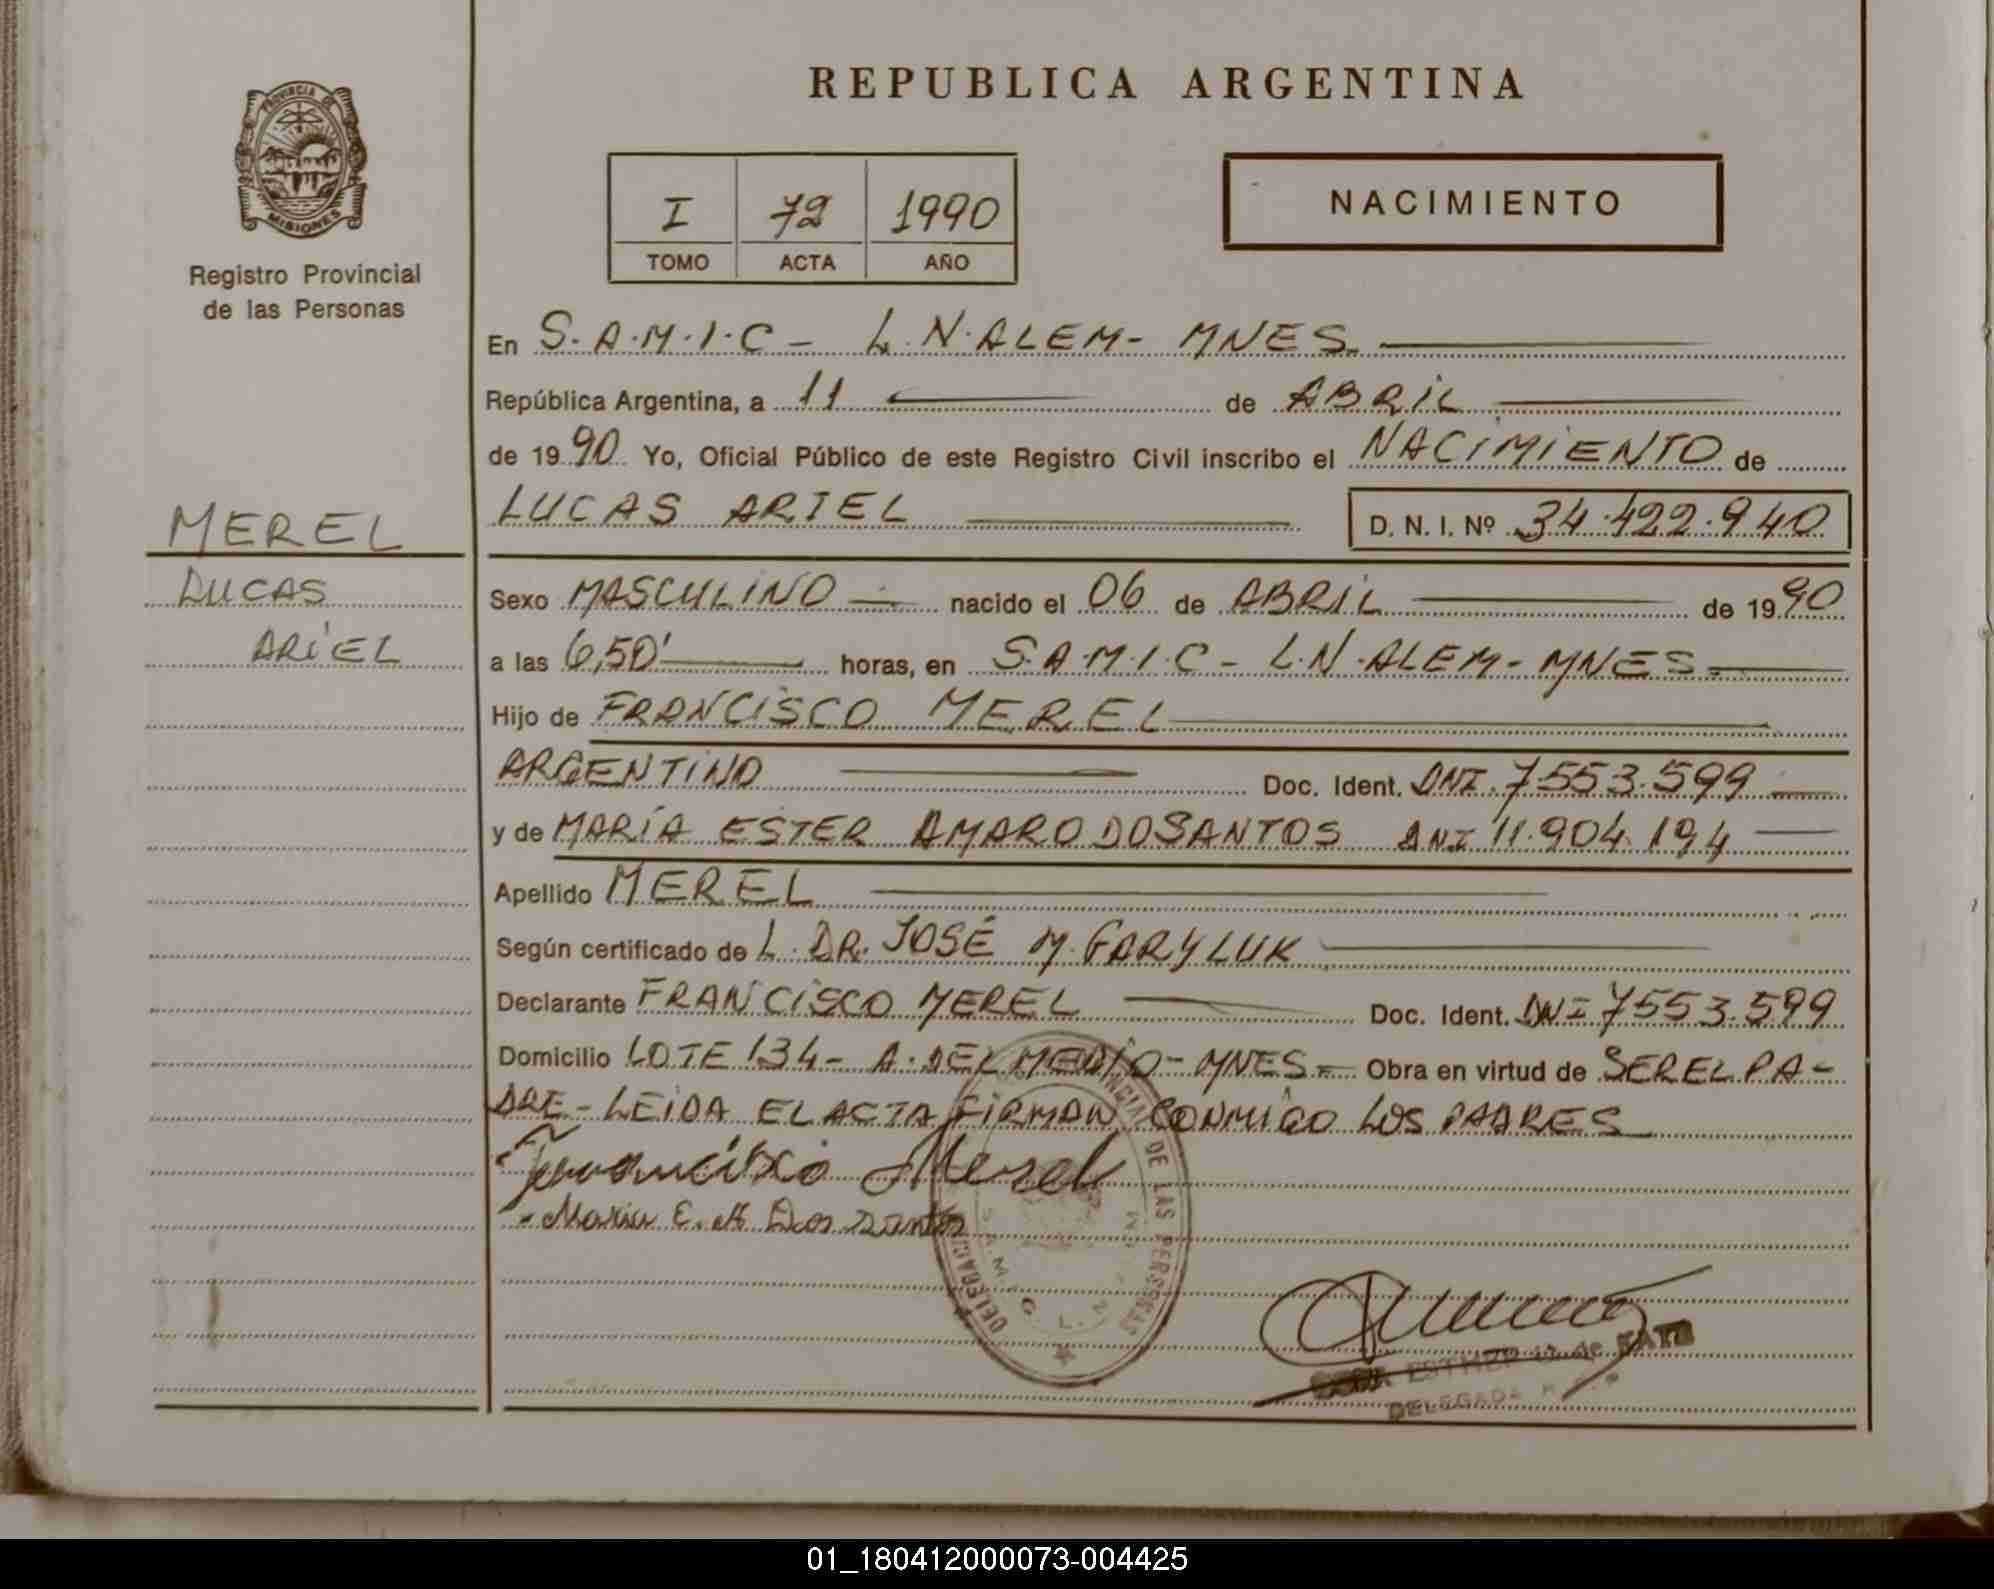 REPUBLICA ARGENTINA
PROVINCIA DE
MISIONES
Registro Provincial
de las Personas
I 72 1990
TOMO ACTA AÑO
NACIMIENTO
En S.A.M.I.C - L.N.ALEM - MNES
República Argentina, a 11 de ABRIL
de 1990 Yo, Oficial Público de este Registro Civil inscribo el NACIMIENTO de
LUCAS ARIEL D. N. I. Nº 34.422.940
MEREL
LUCAS
ARIEL
Sexo MASCULINO nacido el 06 de ABRIL de 1990
a las 6,50' horas, en S.A.M.I.C - L.N.ALEM - MNES
Hijo de FRANCISCO MEREL
ARGENTINO Doc. Ident. DNI. 7.553.599
y de MARÍA ESTER AMARO DOSANTOS DNI 11.904.194
Apellido MEREL
Según certificado de L. DR. JOSÉ M. GARYLUK
Declarante FRANCISCO MEREL Doc. Ident. DNI 7553.599
Domicilio LOTE 134 - A. DEL MEDIO - MNES - Obra en virtud de SER EL PA-
DRE - LEIDA EL ACTA FIRMAN CONMIGO LOS PADRES
Francisco Merel
Maria E. A Dos santos
DE LAS PERSONAS
ESTHER de KATZ
DELEGADA
01_180412000073-004425